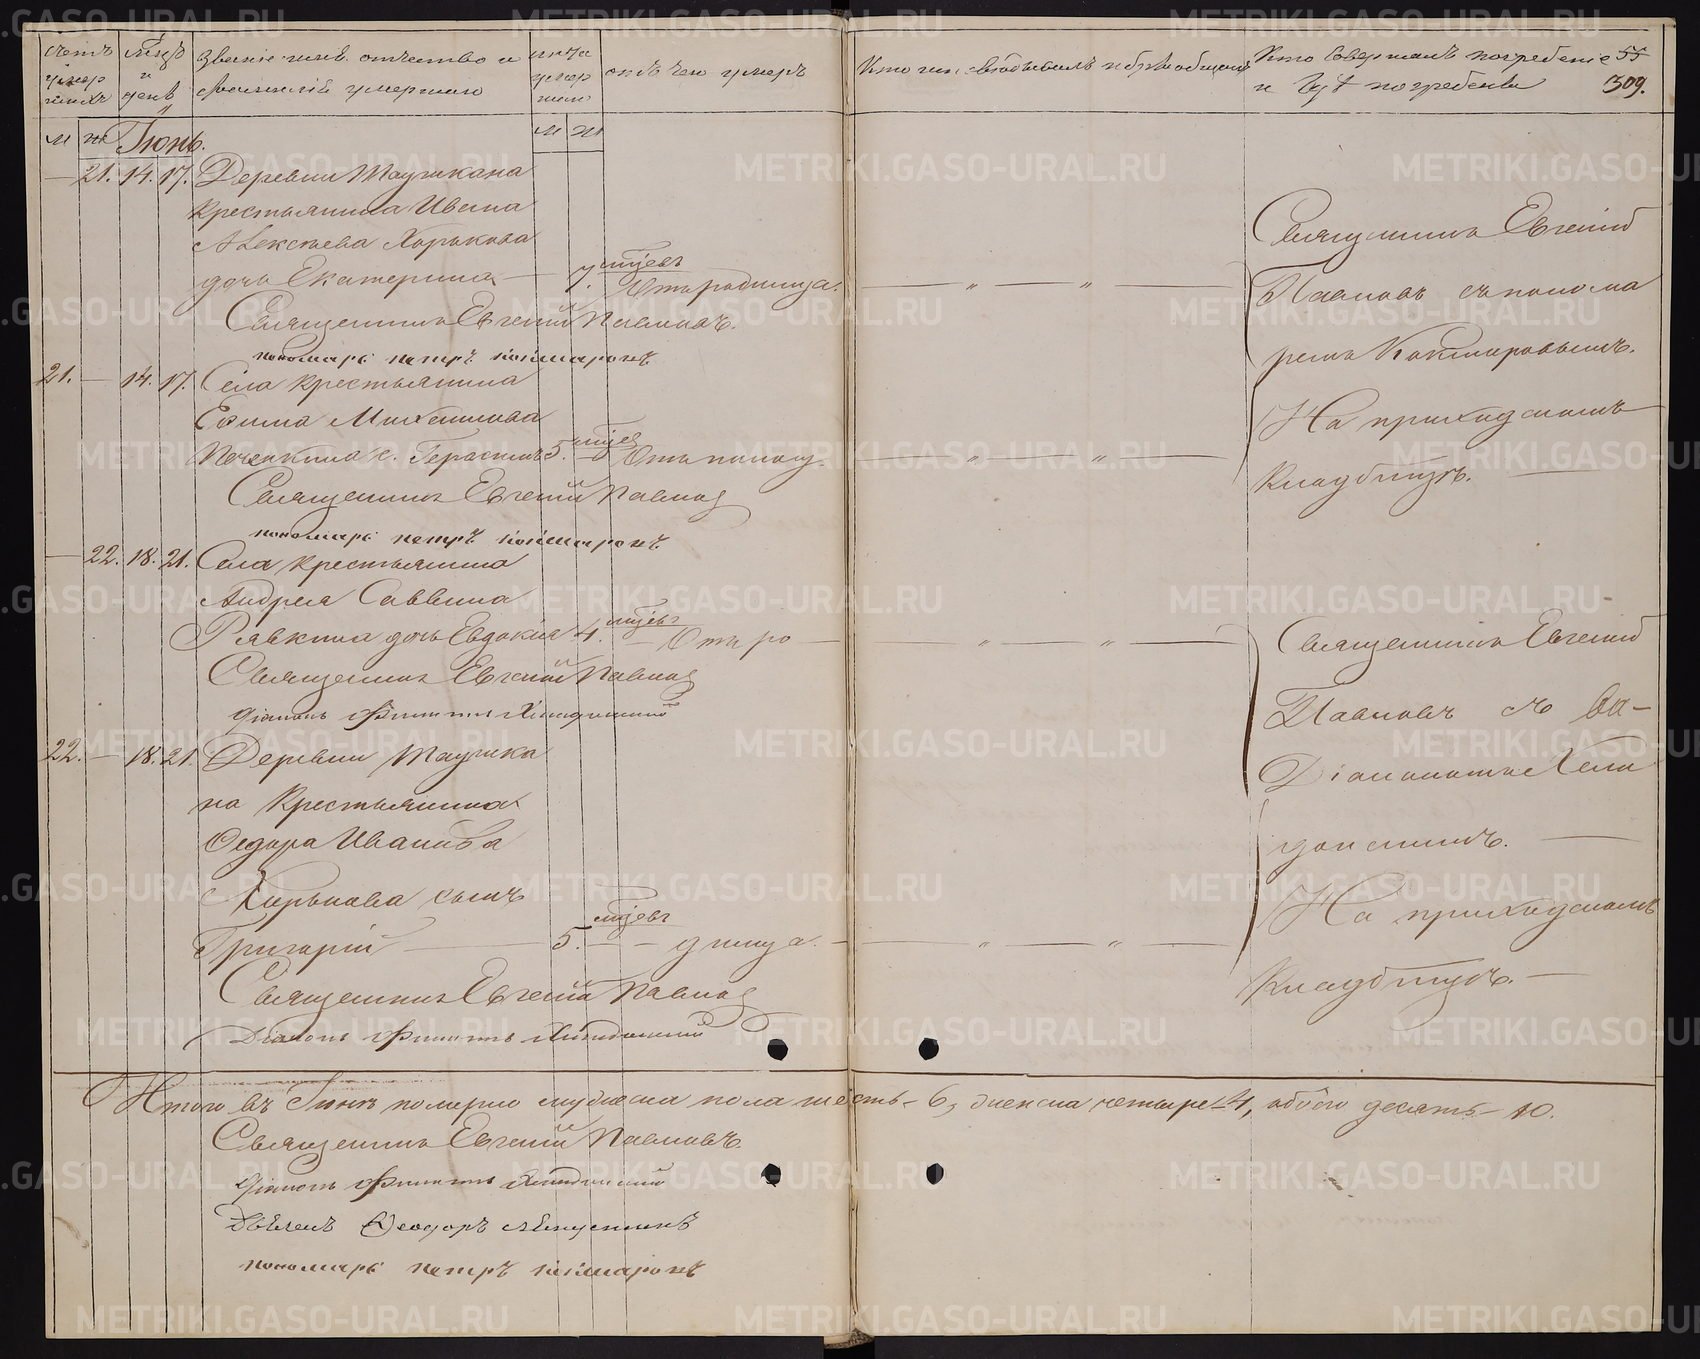 Счетъ умер шихъ
Мѣсяцъ и день
Званіе имя отчество и фамилія умершаго
лѣта умер шаго
отъ чего умеръ
Кто исповѣдывалъ и пріобщалъ
Кто совершалъ погребеніе и гдѣ погребены
55
309.
М Ж Іюнь. М Ж
21. 14. 17. Деревни Таушкана
Крестьянина Ивана
Алексѣева Хорькова
дочь Екатерина 7. мцевъ Отъ родимца.
Священникъ Евгеній Павловъ.
пономарь петръ
21. 14. 17. Села Крестьянина
Ефима Михаилова
Печенкина с. Герасимъ 5. мцев Отъ поносу.
Священникъ Евгеній Павлов
пономарь петръ
22. 18. 21. Села Крестьянина
Андрея Саввина
Рявкина дочь Евдокія 4. мцевъ Отъ ро
Священникъ Евгеній Павлов
Діаконъ
22. 18. 21. Деревни Таушка
на Крестьянина
Федора Иванова
Хорькова сынъ
Григорій 5. мцевъ димца.
Священникъ Евгеній Павлов
Діаконъ
Священникъ Евгеній
Павловъ съ понома
ремъ
На приходскомъ
Кладбищѣ.
Священникъ Евгеній
Павловъ съ
Діакономъ
На приходскомъ
Кладбищѣ.
Итого въ Іюнѣ померло мужеска пола шесть - 6, женска четыре - 4, обоего десять - 10.
Священникъ Евгеній Павловъ.
Діаконъ
Ѳеодоръ
пономарь петръ
METRIKI.GASO-URAL.RU